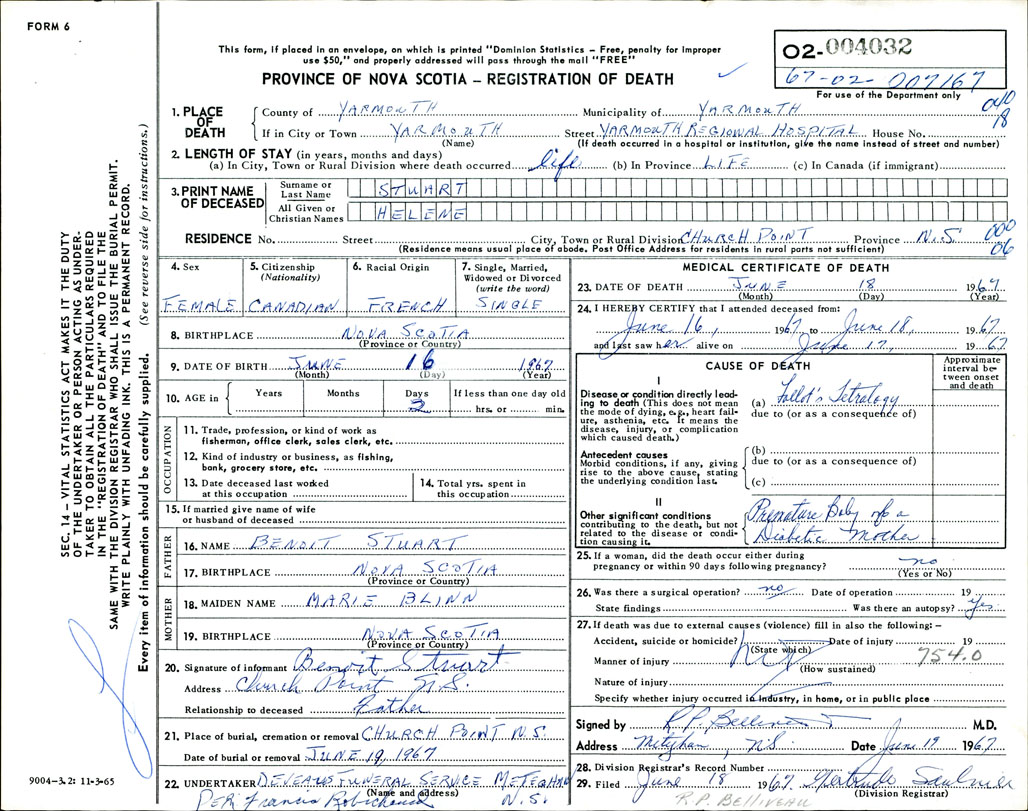 FORM 6
This form, if placed in an envelope, on which is printed "Dominion Statistics – Free, penalty for improper
use $50," and properly addressed will pass through the mail "FREE"
PROVINCE OF NOVA SCOTIA – REGISTRATION OF DEATH
02-004032
67-02-007167
For use of the Department only
040
18
1. PLACE OF DEATH
County of YARMOUTH Municipality of YARMOUTH
If in City or Town YARMOUTH Street YARMOUTH REGIONAL HOSPITAL House No.
(Name) (If death occurred in a hospital or institution, give the name instead of street and number)
2. LENGTH OF STAY (in years, months and days)
(a) In City, Town or Rural Division where death occurred life (b) In Province LIFE (c) In Canada (if immigrant)
3. PRINT NAME OF DECEASED
Surname or Last Name STUART
All Given or Christian Names HELENE
RESIDENCE No. Street City, Town or Rural Division CHURCH POINT Province N.S. 000
06
(Residence means usual place of abode. Post Office Address for residents in rural parts not sufficient)
SEC. 14 – VITAL STATISTICS ACT MAKES IT THE DUTY
OF THE UNDERTAKER OR PERSON ACTING AS UNDER-
TAKER TO OBTAIN ALL THE PARTICULARS REQUIRED
IN THE "REGISTRATION OF DEATH" AND TO FILE THE
SAME WITH THE DIVISION REGISTRAR WHO SHALL ISSUE THE BURIAL PERMIT.
WRITE PLAINLY WITH UNFADING INK. THIS IS A PERMANENT RECORD.
Every item of information should be carefully supplied. (See reverse side for instructions.)
4. Sex
FEMALE
5. Citizenship
(Nationality)
CANADIAN
6. Racial Origin
FRENCH
7. Single, Married,
Widowed or Divorced
(write the word)
SINGLE
8. BIRTHPLACE NOVA SCOTIA
(Province or Country)
9. DATE OF BIRTH JUNE 16 1967
(Month) (Day) (Year)
10. AGE in
Years Months Days If less than one day old
2 hrs. or min.
OCCUPATION
11. Trade, profession, or kind of work as
fisherman, office clerk, sales clerk, etc.
12. Kind of industry or business, as fishing,
bank, grocery store, etc.
13. Date deceased last worked
at this occupation
14. Total yrs. spent in
this occupation
15. If married give name of wife
or husband of deceased
FATHER
16. NAME BENOIT STUART
17. BIRTHPLACE NOVA SCOTIA
(Province or Country)
MOTHER
18. MAIDEN NAME MARIE BLINN
19. BIRTHPLACE NOVA SCOTIA
(Province or Country)
20. Signature of informant Benoit Stuart
Address Church Point N.S.
Relationship to deceased Father
21. Place of burial, cremation or removal CHURCH POINT N.S.
Date of burial or removal JUNE 19, 1967
22. UNDERTAKER DEVEAUS FUNERAL SERVICE METEGHAN
(Name and address) N.S.
PER: Francis Robichaud
9004-3.2: 11-3-65
MEDICAL CERTIFICATE OF DEATH
23. DATE OF DEATH JUNE 18 1967
(Month) (Day) (Year)
24. I HEREBY CERTIFY that I attended deceased from:
June 16, 1967 to June 18, 1967
and last saw her alive on June 17, 1967
CAUSE OF DEATH
Approximate
interval be-
tween onset
and death
I
Disease or condition directly lead-
ing to death (This does not mean
the mode of dying, e.g., heart fail-
ure, asthenia, etc. It means the
disease, injury, or complication
which caused death.)
(a) Fallot's Tetralogy
due to (or as a consequence of)
Antecedent causes
Morbid conditions, if any, giving
rise to the above cause, stating
the underlying condition last.
(b)
due to (or as a consequence of)
(c)
II
Other significant conditions
contributing to the death, but not
related to the disease or condi-
tion causing it.
Premature Baby of a
Diabetic Mother
25. If a woman, did the death occur either during
pregnancy or within 90 days following pregnancy? no
(Yes or No)
26. Was there a surgical operation? no Date of operation 19
State findings Was there an autopsy? Yes
27. If death was due to external causes (violence) fill in also the following: –
Accident, suicide or homicide? Date of injury 19
(State which)
754.0
Manner of injury
(How sustained)
Nature of injury
Specify whether injury occurred in industry, in home, or in public place
Signed by R.P. Belliveau M.D.
Address Meteghan, N.S. Date June 19 1967
28. Division Registrar's Record Number
29. Filed June 18 1967 Gertrude Saulnier
(Division Registrar)
R.P. BELLIVEAU